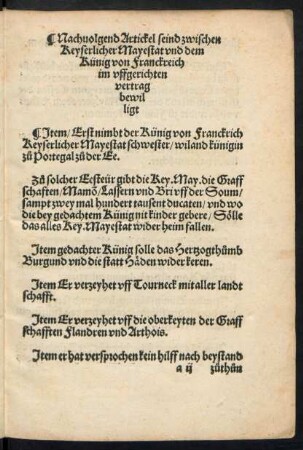 ¶Nachuolgend Artickel seind zwischen
Keyserlicher Mayestat vnd dem
Künig von Franckreich
im vffgerichten
vertrag
bewil
ligt
¶Item/ Erst nimbt der Künig von Franckrich
Keyserlicher Mayestat schwester/ wiland künigin
zů Portegal zů der Ee.
Zů solcher Eesteür gibt die Key. May. die Graff
schafften/ Mamõ/ Lassern vnd Bri vff der Soum/
sampt zwey mal hundert tausent ducaten/ vnd wo
die bey gedachtem Künig nit kinder gebere/ Sölle
das alles Key. Mayestat wider heim fallen.
Item gedachter Künig solle das Hertzogthůmb
Burgund vnd die statt Häden wider keren.
Item Er verzeyhet vff Tourneck mit aller landt
schafft.
Item Er verzeyhet vff die oberkeyten der Graff
schafften Flandren vnd Arthois.
Item er hat versprochen kein hilff nach beystand
a ij zůthůn